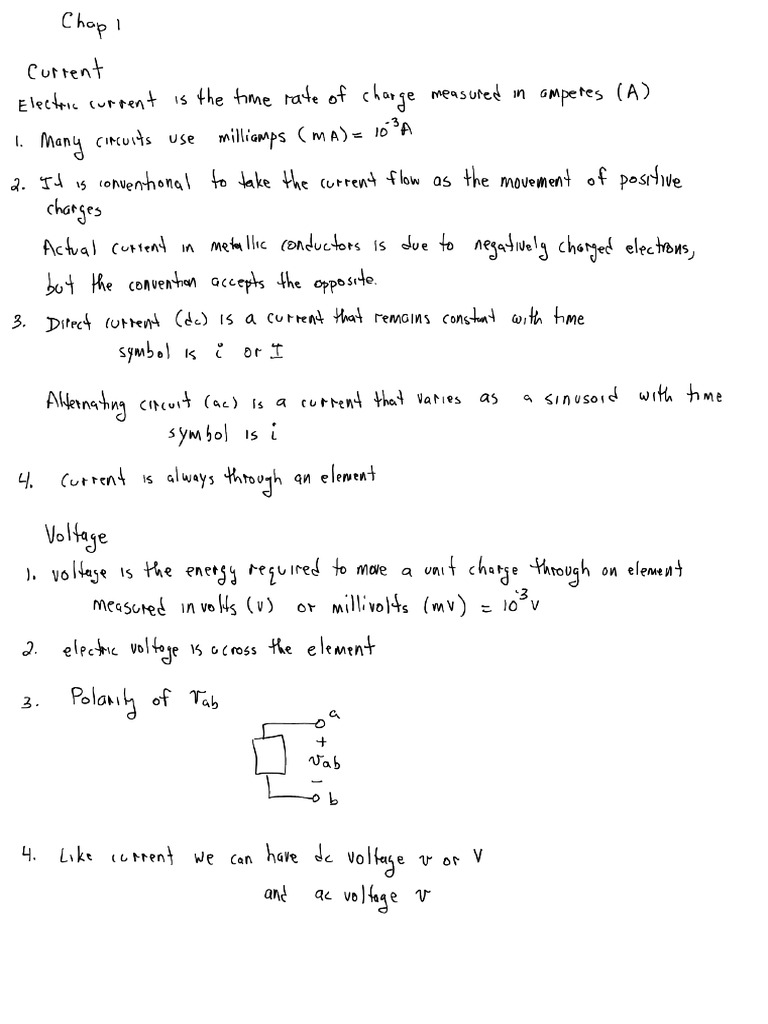 Chap 1
Current
Electric current is the time rate of charge measured in amperes (A)
1. Many circuits use milliamps (mA) = 10⁻³A
2. It is conventional to take the current flow as the movement of positive
charges
Actual current in metallic conductors is due to negatively charged electrons,
but the convention accepts the opposite.
3. Direct current (dc) is a current that remains constant with time
symbol is i or I
Alternating circuit (ac) is a current that varies as a sinusoid with time
symbol is i
4. Current is always through an element
Voltage
1. voltage is the energy required to move a unit charge through an element
measured in volts (v) or millivolts (mv) = 10⁻³v
2. electric voltage is across the element
3. Polarity of vab
a
+
vab
−
b
4. Like current we can have dc voltage v or V
and ac voltage v